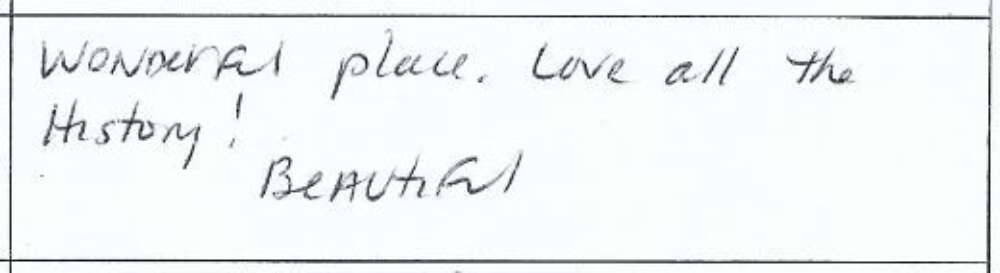 Wonderful place. Love all the
History!
Beautiful